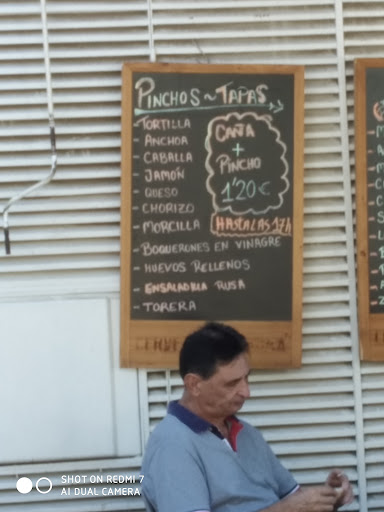 PINCHOS ~ TAPAS
- TORTILLA
- ANCHOA
- CABALLA
- JAMÓN
- QUESO
- CHORIZO
- MORCILLA
- BOQUERONES EN VINAGRE
- HUEVOS RELLENOS
- ENSALADILLA RUSA
- TORERA
CAÑA
+
PINCHO
1'20€
HASTA LAS 17h
SHOT ON REDMI 7
AI DUAL CAMERA